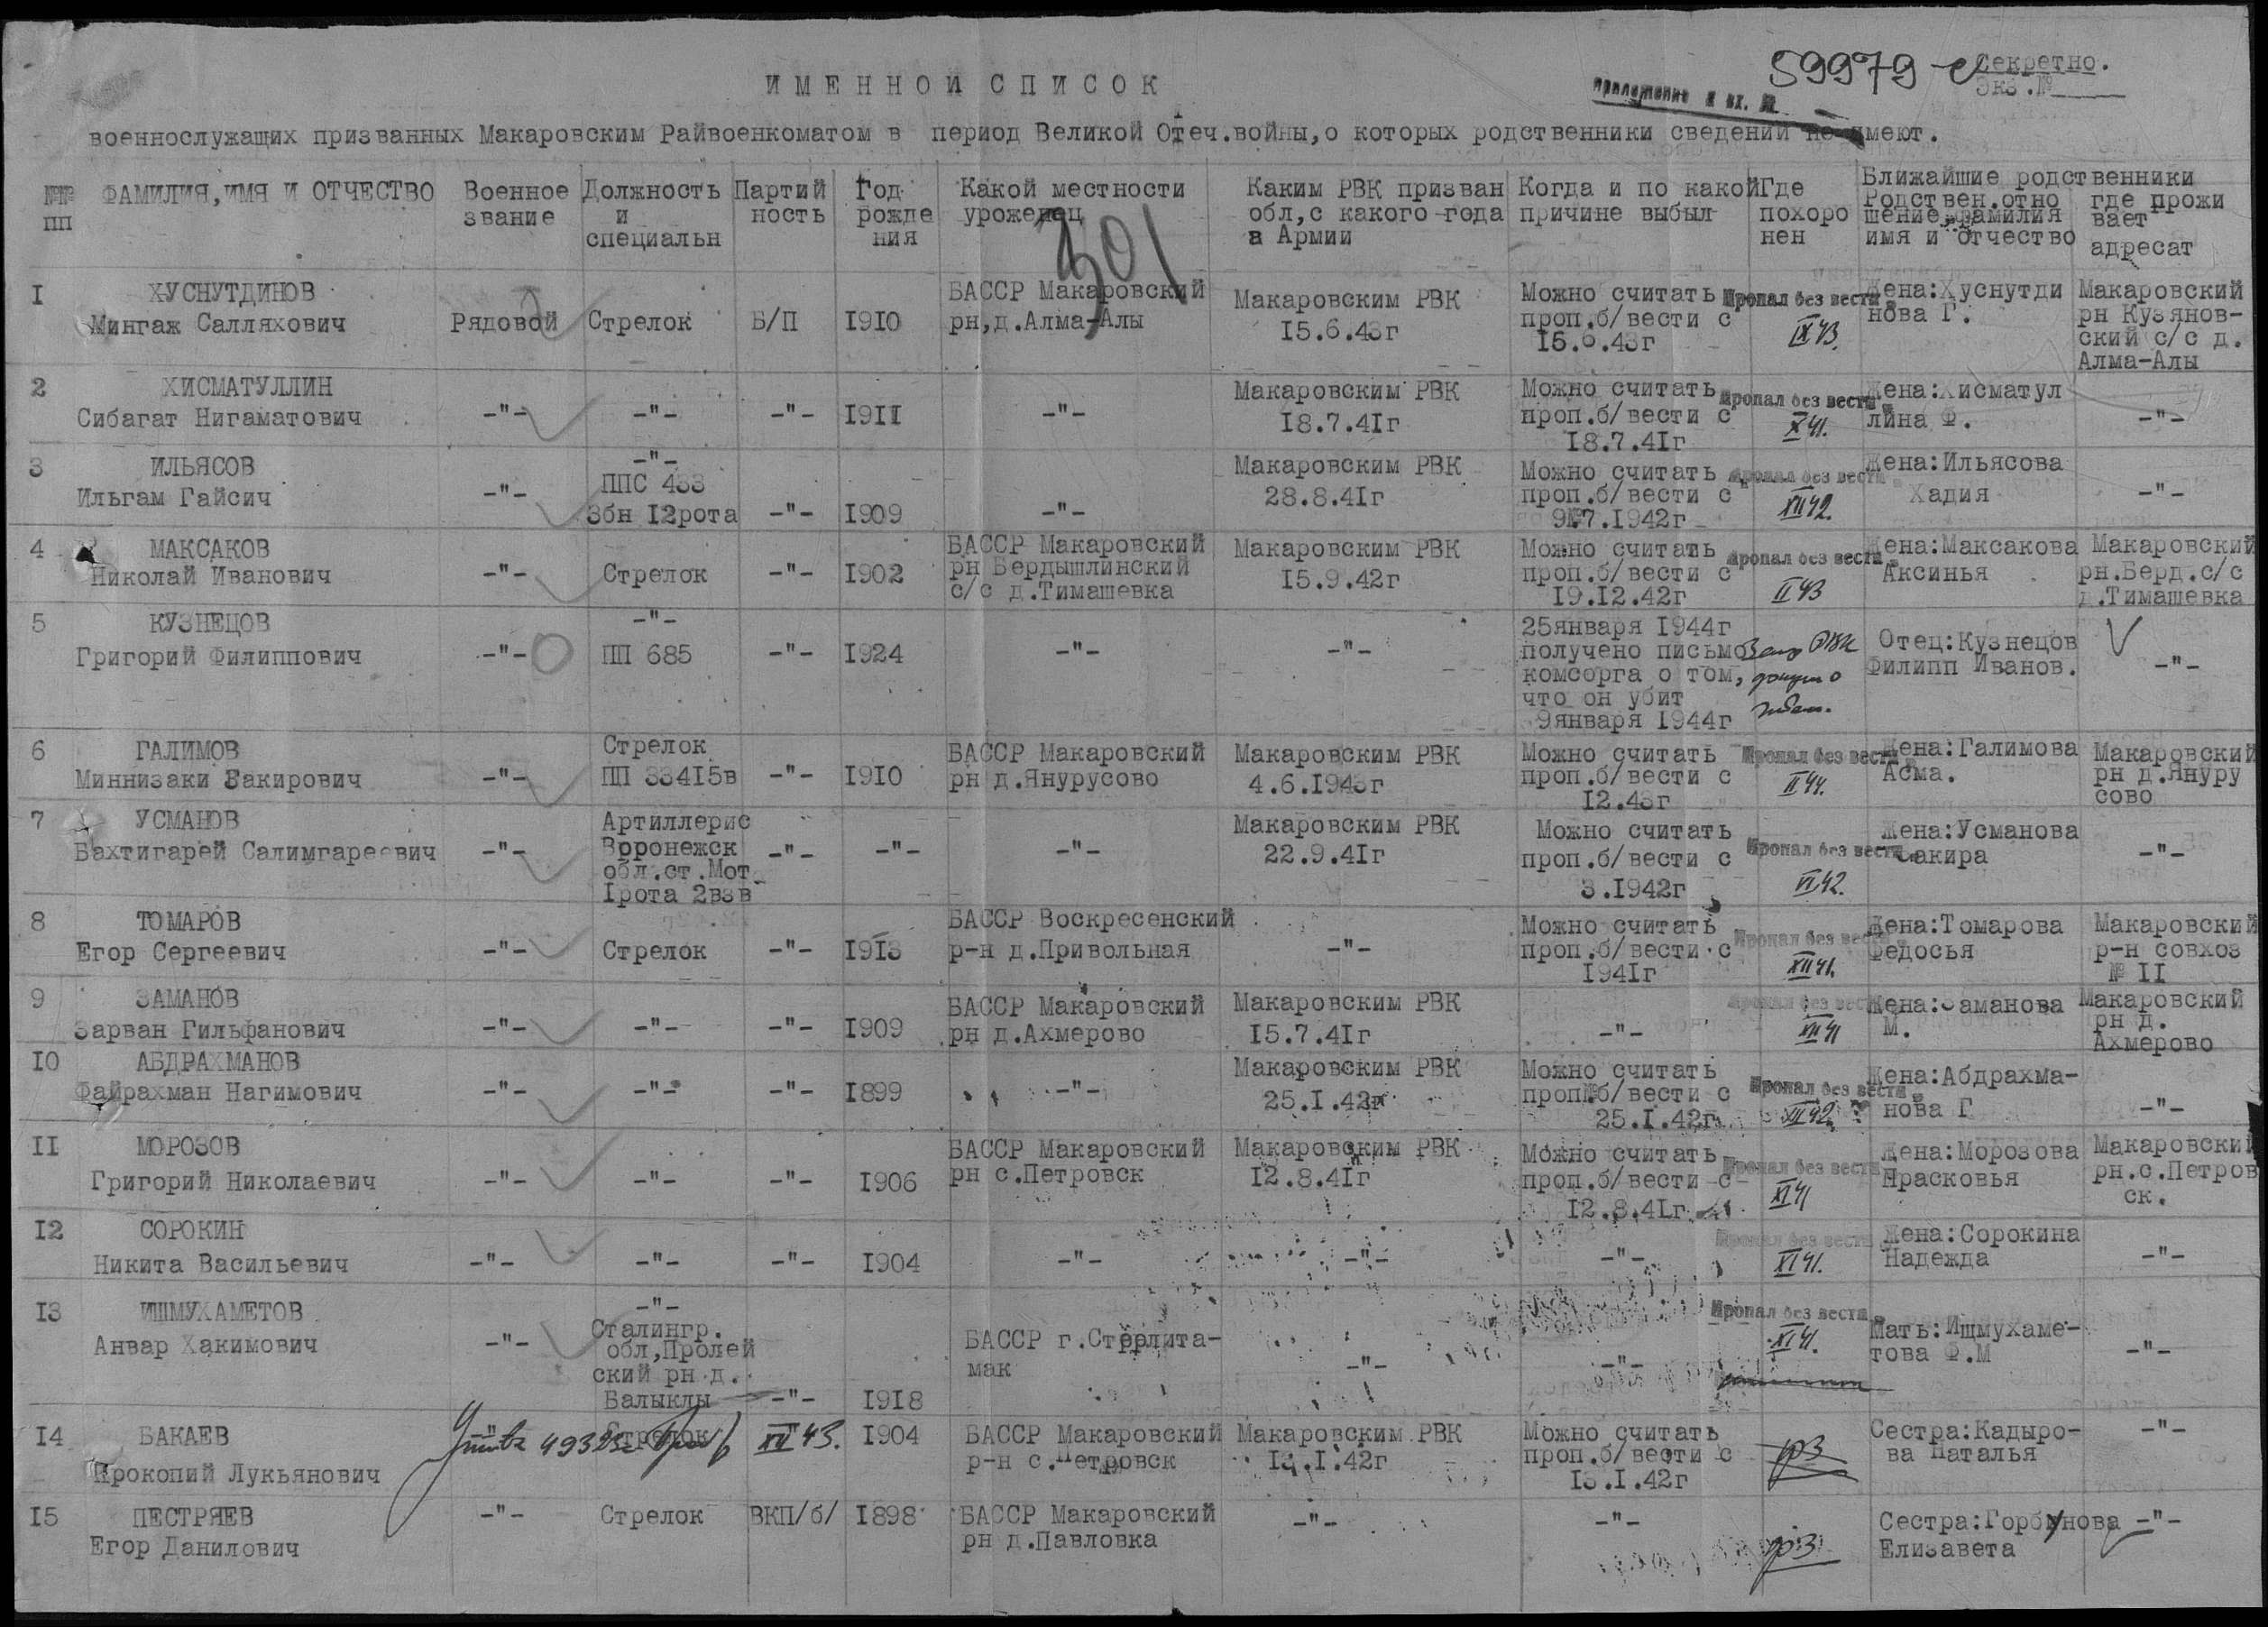 59979 с
Секретно.
Экз.№
ИМЕННОЙ СПИСОК
приложение к вх. №
военнослужащих призванных Макаровским Райвоенкоматом в период Великой Отеч.войны,о которых родственники сведений не имеют.
№№ пп
ФАМИЛИЯ,ИМЯ И ОТЧЕСТВО
Военное звание
Должность и специальн
Партий ность
Год рожде ния
Какой местности уроженец
Каким РВК призван обл,с какого года в Армии
Когда и по какой причине выбыл
Где похоро нен
Ближайшие родственники
Родствен.отно шение,фамилия имя и отчество
где прожи вает адресат
301
1 ХУСНУТДИНОВ
Мингаж Салляхович
Рядовой
Стрелок
Б/П
1910
БАССР Макаровский
рн,д.Алма-Алы
Макаровским РВК
15.6.43г
Можно считать
проп.б/вести с
15.6.43г
Пропал без вести в
IX 43.
Жена:Хуснутди
нова Г.
Макаровский
рн Кузянов-
ский с/с д.
Алма-Алы
2 ХИСМАТУЛЛИН
Сибагат Нигаматович
-"- -"- -"- 1911 -"-
Макаровским РВК
18.7.41г
Можно считать
проп.б/вести с
18.7.41г
Пропал без вести в
X 41.
Жена:Хисматул
лина Ф.
-"-
3 ИЛЬЯСОВ
Ильгам Гайсич
-"-
-"-
ППС 433
3бн 12рота
-"- 1909 -"-
Макаровским РВК
28.8.41г
Можно считать
проп.б/вести с
9№7.1942г
Пропал без вести в
XII 42.
Жена:Ильясова
Хадия
-"-
4 МАКСАКОВ
Николай Иванович
-"- Стрелок -"- 1902
БАССР Макаровский
рн Бердышлинский
с/с д.Тимашевка
Макаровским РВК
15.9.42г
Можно считать
проп.б/вести с
19.12.42г
Пропал без вести в
II 43
Жена:Максакова
Аксинья
Макаровский
рн.Берд.с/с
д.Тимашевка
5 КУЗНЕЦОВ
Григорий Филиппович
-"-
-"-
ПП 685
-"- 1924 -"- -"-
25января 1944г
получено письмо
комсорга о том,
что он убит
9января 1944г
Отец:Кузнецов
Филипп Иванов.
-"-
6 ГАЛИМОВ
Миннизаки Закирович
-"-
Стрелок
ПП 33415в
-"- 1910
БАССР Макаровский
рн д.Янурусово
Макаровским РВК
4.6.1943г
Можно считать
проп.б/вести с
12.43г
Пропал без вести в
II 44.
Жена:Галимова
Асма.
Макаровский
рн д.Януру
сово
7 УСМАНОВ
Бахтигарей Салимгареевич
-"-
Артиллерис
Воронежск
обл.ст.Мот
1рота 2взв
-"- -"- -"-
Макаровским РВК
22.9.41г
Можно считать
проп.б/вести с
3.1942г
Пропал без вести в
VI 42.
Жена:Усманова
Закира
-"-
8 ТОМАРОВ
Егор Сергеевич
-"- Стрелок -"- 1913
БАССР Воскресенский
р-н д.Привольная
-"-
Можно считать
проп.б/вести с
1941г
Пропал без вести
XII 41.
Жена:Томарова
Федосья
Макаровский
р-н совхоз
№ 11
9 ЗАМАНОВ
Зарван Гильфанович
-"- -"- -"- 1909
БАССР Макаровский
рн д.Ахмерово
Макаровским РВК
15.7.41г
-"-
Пропал без вести
XII 41
Жена:Заманова
М.
Макаровский
рн д.
Ахмерово
10 АБДРАХМАНОВ
Файрахман Нагимович
-"- -"- -"- 1899 -"-
Макаровским РВК
25.1.42г
Можно считать
проп№б/вести с
25.1.42г
Пропал без вести в
XII 42.
Жена:Абдрахма-
нова Г
-"-
11 МОРОЗОВ
Григорий Николаевич
-"- -"- -"- 1906
БАССР Макаровский
рн с.Петровск
Макаровским РВК
12.8.41г
Можно считать
проп.б/вести с
12.8.41г
Пропал без вести
XI 41
Жена:Морозова
Прасковья
Макаровский
рн.с.Петров
ск.
12 СОРОКИН
Никита Васильевич
-"- -"- -"- 1904 -"- -"- -"-
Пропал без вести
XI 41.
Жена:Сорокина
Надежда
-"-
13 ИШМУХАМЕТОВ
Анвар Хакимович
-"-
-"-
Сталингр.
обл,Пролей
ский рн д.
Балыклы
-"- 1918
БАССР г.Стерлита-
мак
-"- -"-
Пропал без вести в
XI 41.
Мать:Ишмухаме-
това Ф.М
-"-
14 БАКАЕВ
Прокопий Лукьянович
Стрелок
XII 43.
1904
БАССР Макаровский
р-н с.Петровск
Макаровским РВК
13.1.42г
Можно считать
проп.б/вести с
13.1.42г
рз
Сестра:Кадыро-
ва Наталья
-"-
15 ПЕСТРЯЕВ
Егор Данилович
-"- Стрелок ВКП/б/ 1898
БАССР Макаровский
рн д.Павловка
-"- -"-
рз
Сестра:Горбунова
Елизавета
-"-